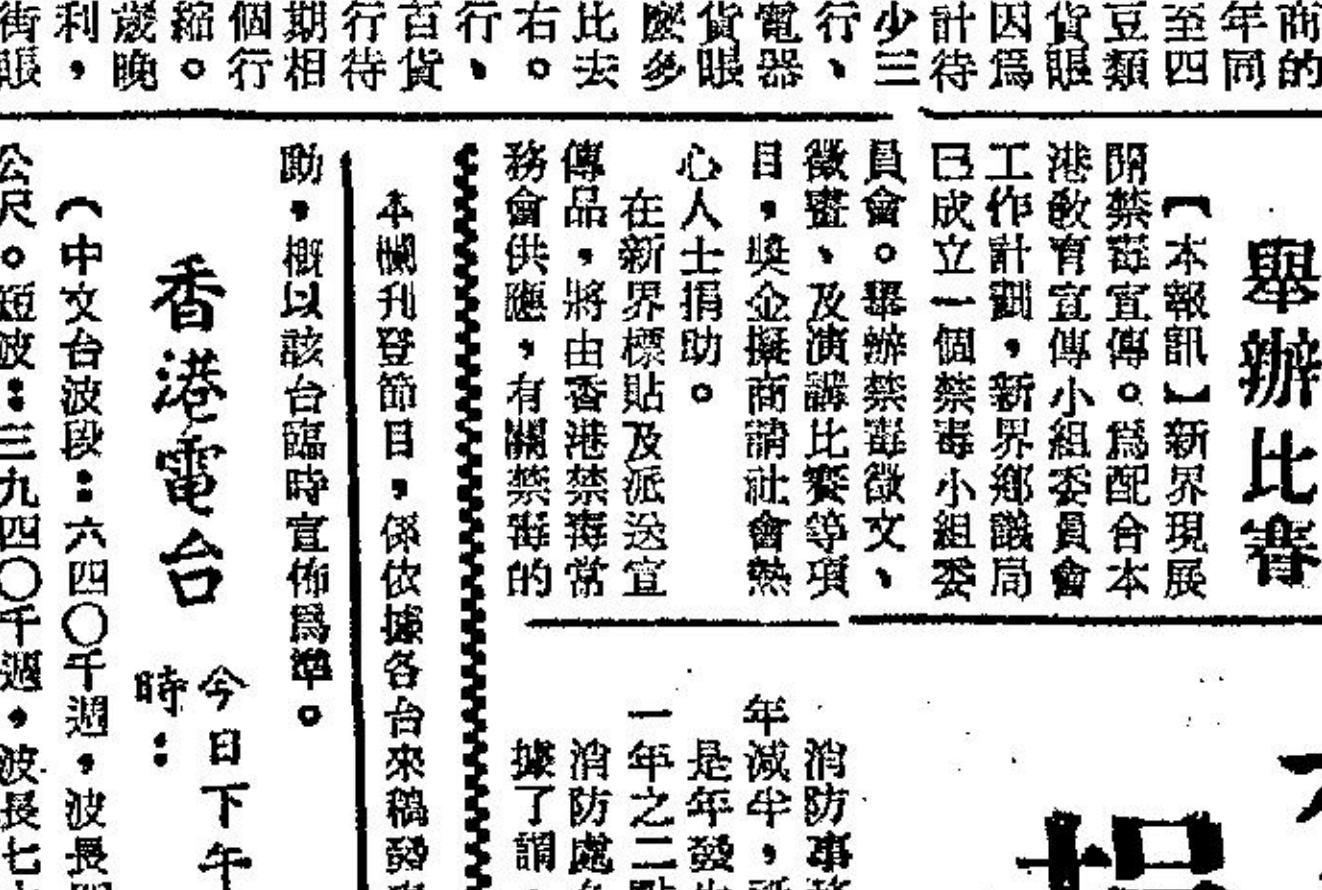 商的
年同
至四
豆類
貨眼
因爲
計待
少三
行、
電器
貨眼
麼多
比去
右。
行、
百貨
行待
期相
個行
縮。
歲晚
利，
街賬
舉辦比賽
【本報訊】新界現展
開禁毒宣傳。爲配合本
港敎育宣傳小組委員會
工作計劃，新界鄉議局
已成立一個禁毒小組委
員會。舉辦禁毒徵文、
徵畫、及演講比賽等項
目，獎金擬商請社會熱
心人士捐助。
在新界標貼及派送宣
傳品，將由香港禁毒常
務會供應，有關禁毒的
消防事務
年減半，
是年發生
一年之二點
消防處
據了謂
本欄刊登節目，係依據各台來稿發
助，概以該台臨時宣佈爲準。
香港電台
今日下午
時：
（中文台波段：六四〇千週，波長四
公尺。短波：三九四〇千週，波長七